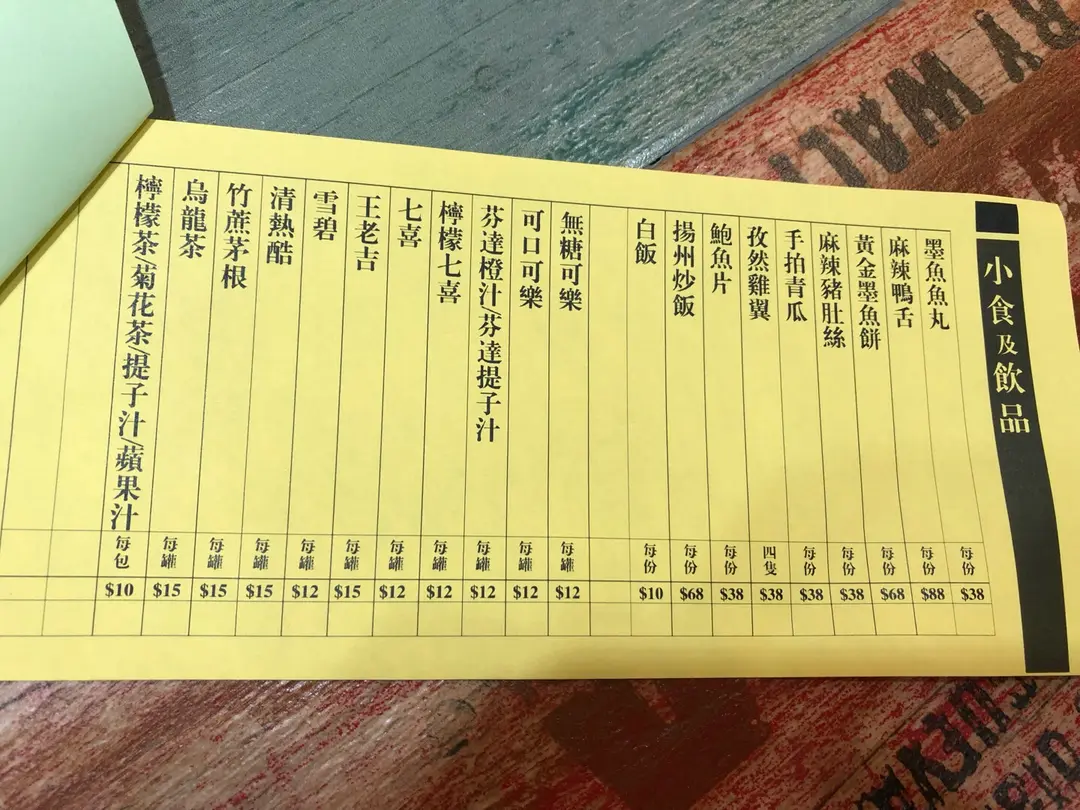 小食及飲品
墨魚魚丸 每份 $38
麻辣鴨舌 每份 $88
黃金墨魚餅 每份 $68
麻辣豬肚絲 每份 $38
手拍青瓜 每份 $38
孜然雞翼 四隻 $38
鮑魚片 每份 $38
揚州炒飯 每份 $68
白飯 每份 $10
無糖可樂 每罐 $12
可口可樂 每罐 $12
芬達橙汁/芬達提子汁 每罐 $12
檸檬七喜 每罐 $12
七喜 每罐 $12
王老吉 每罐 $15
雪碧 每罐 $12
清熱酷 每罐 $15
竹蔗茅根 每罐 $15
烏龍茶 每罐 $15
檸檬茶/菊花茶/提子汁/蘋果汁 每包 $10